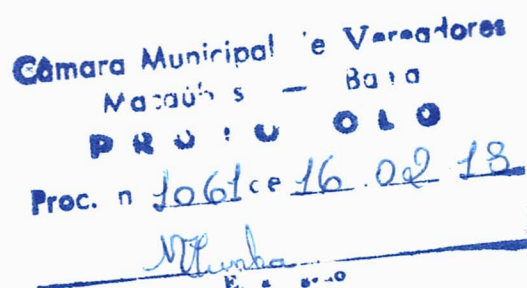 Câmara Municipal de Vereadores
Macaúbas — Bahia
PROTOCOLO
Proc. n 1061 de 16.02.18